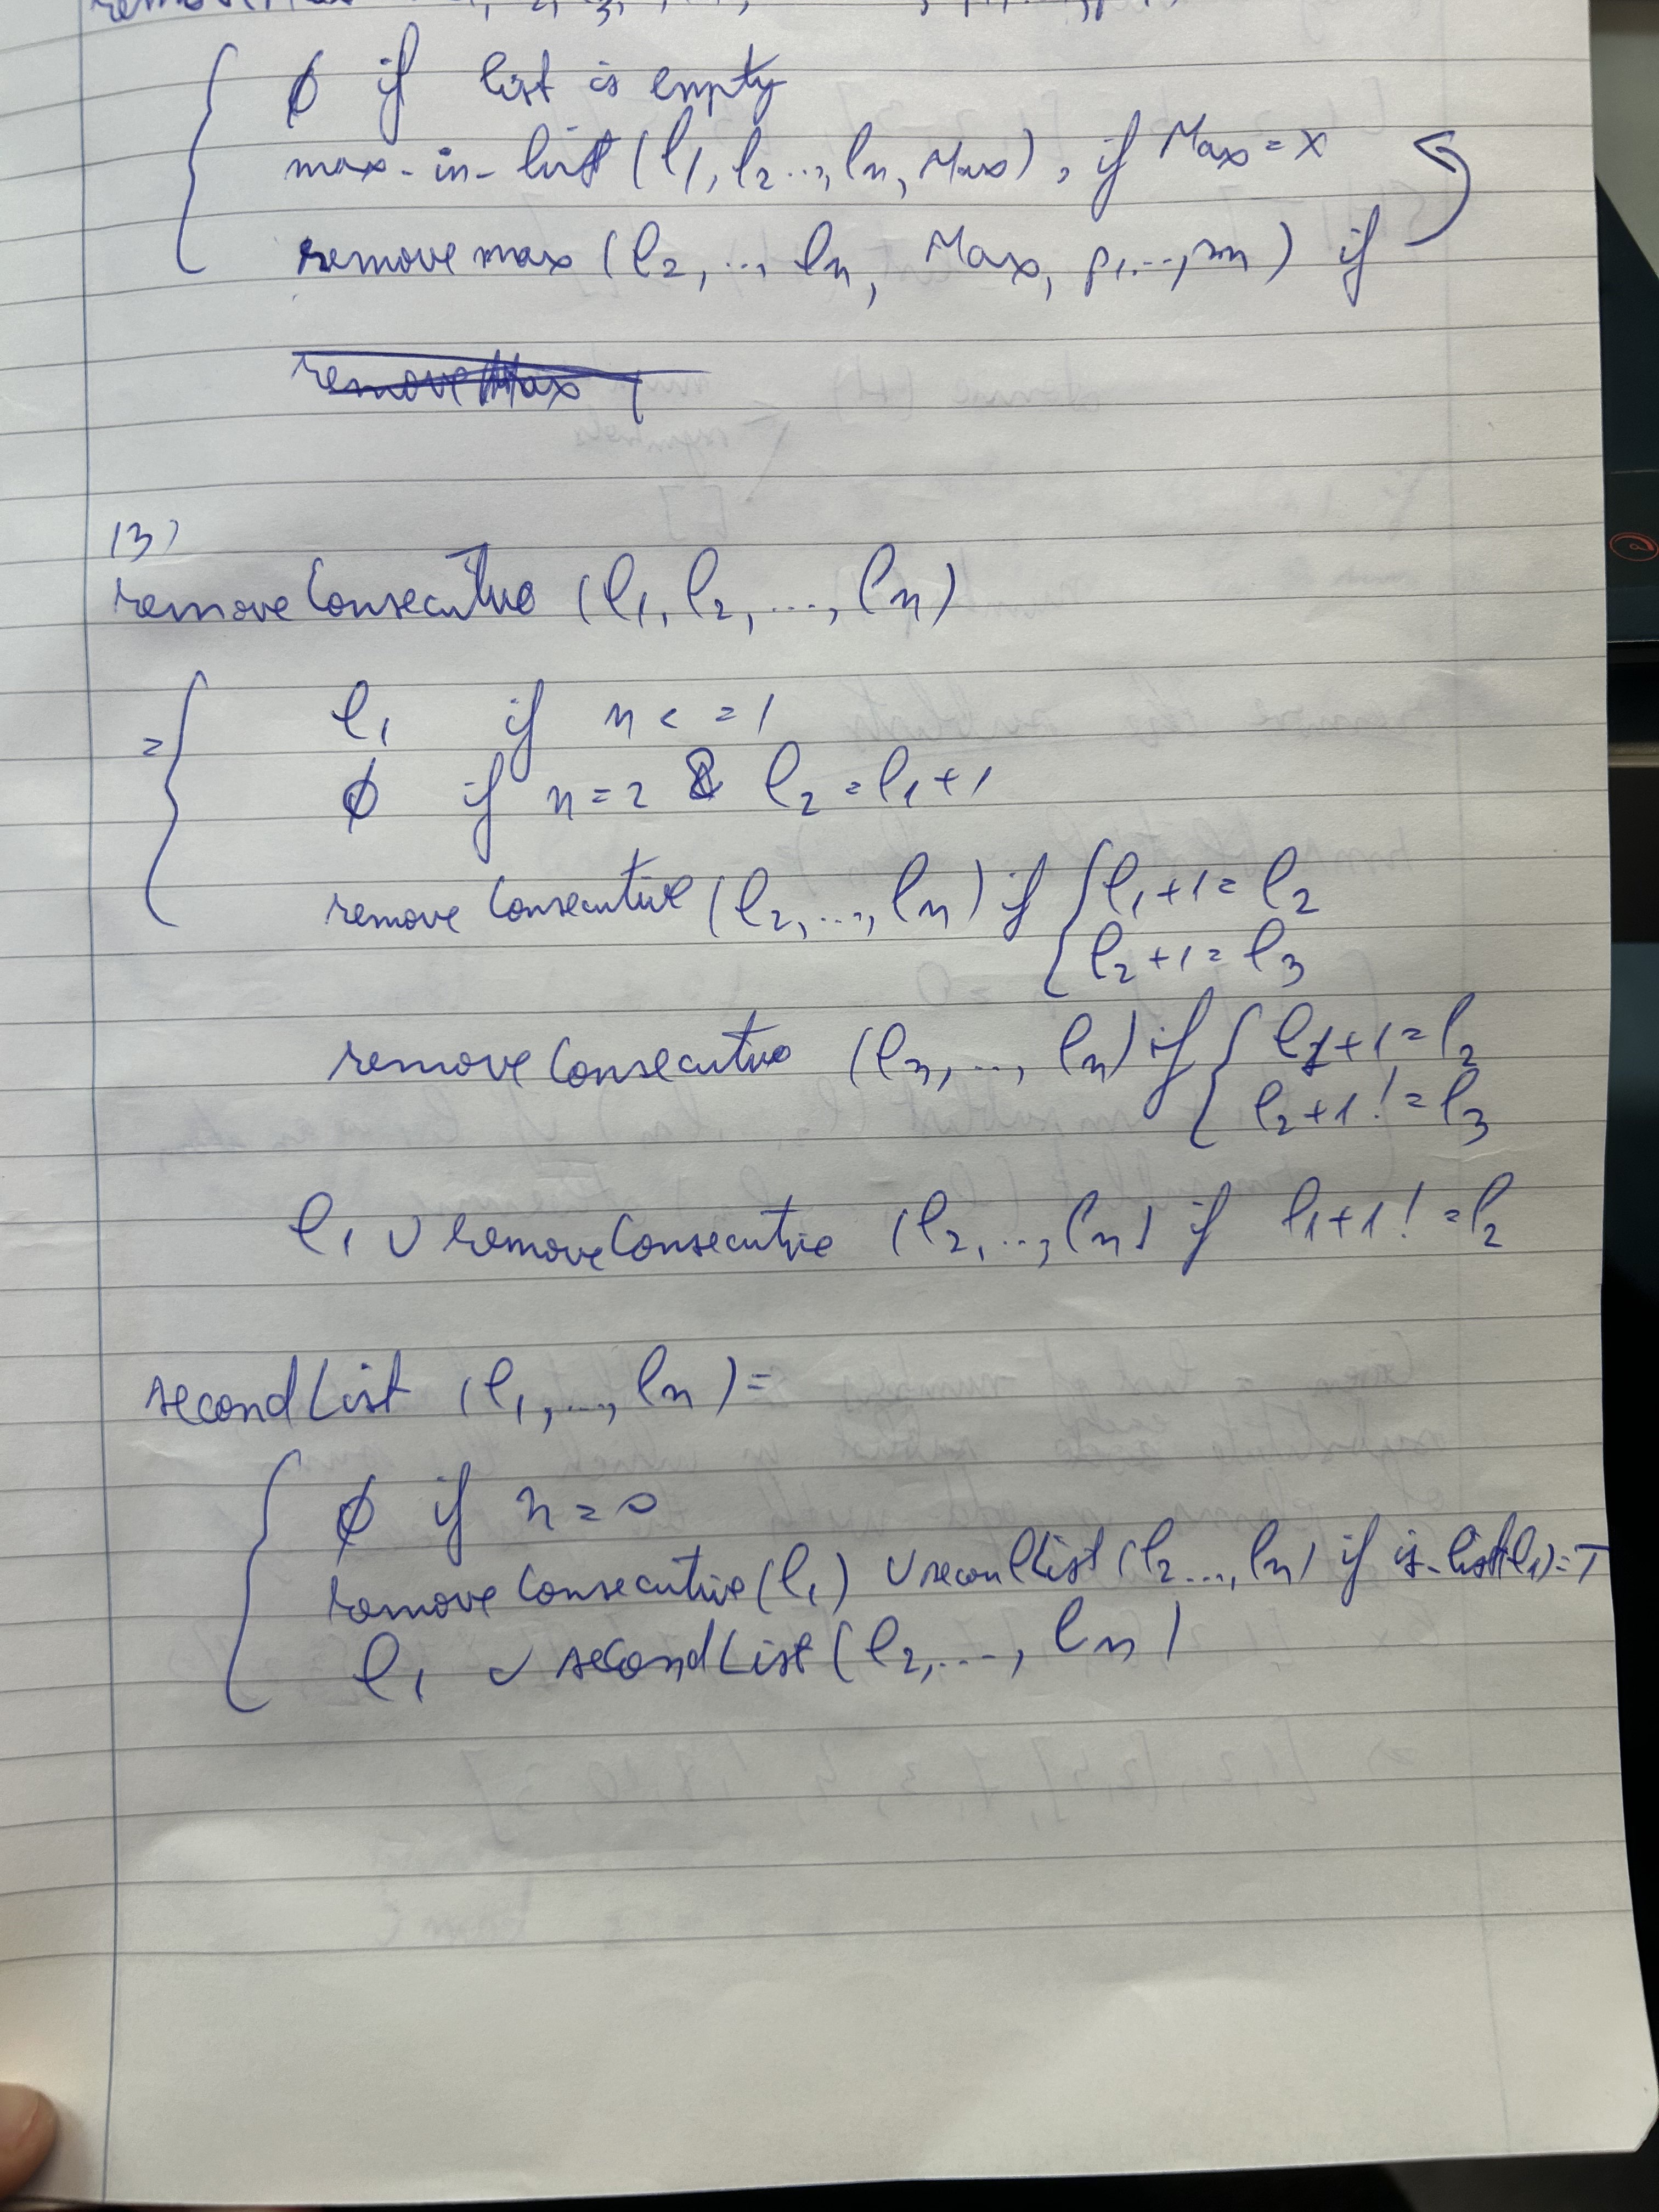 ∅ if list is empty
max-in-list (l1, l2..., ln, Max), if Max = X
removemax (l2, ..., ln, Max, p1..., mn) if
removeMax
13)
removeConsecutive (l1, l2, ..., ln)
= l1 if n <= 1
∅ if n=2 & l2 = l1+1
remove Consecutive (l2, ..., ln) if { l1+1 = l2
l2+1 = l3
removeConsecutive (l3, ..., ln) if { l1+1 = l2
l2+1 != l3
l1 ∪ removeConsecutive (l2, ..., ln) if l1+1 != l2
secondList (l1, ..., ln) =
∅ if n = 0
removeConsecutive (l1) ∪ seconlList (l2..., ln) if is-list(l1)=T
l1 ∪ secondList (l2, ..., ln)